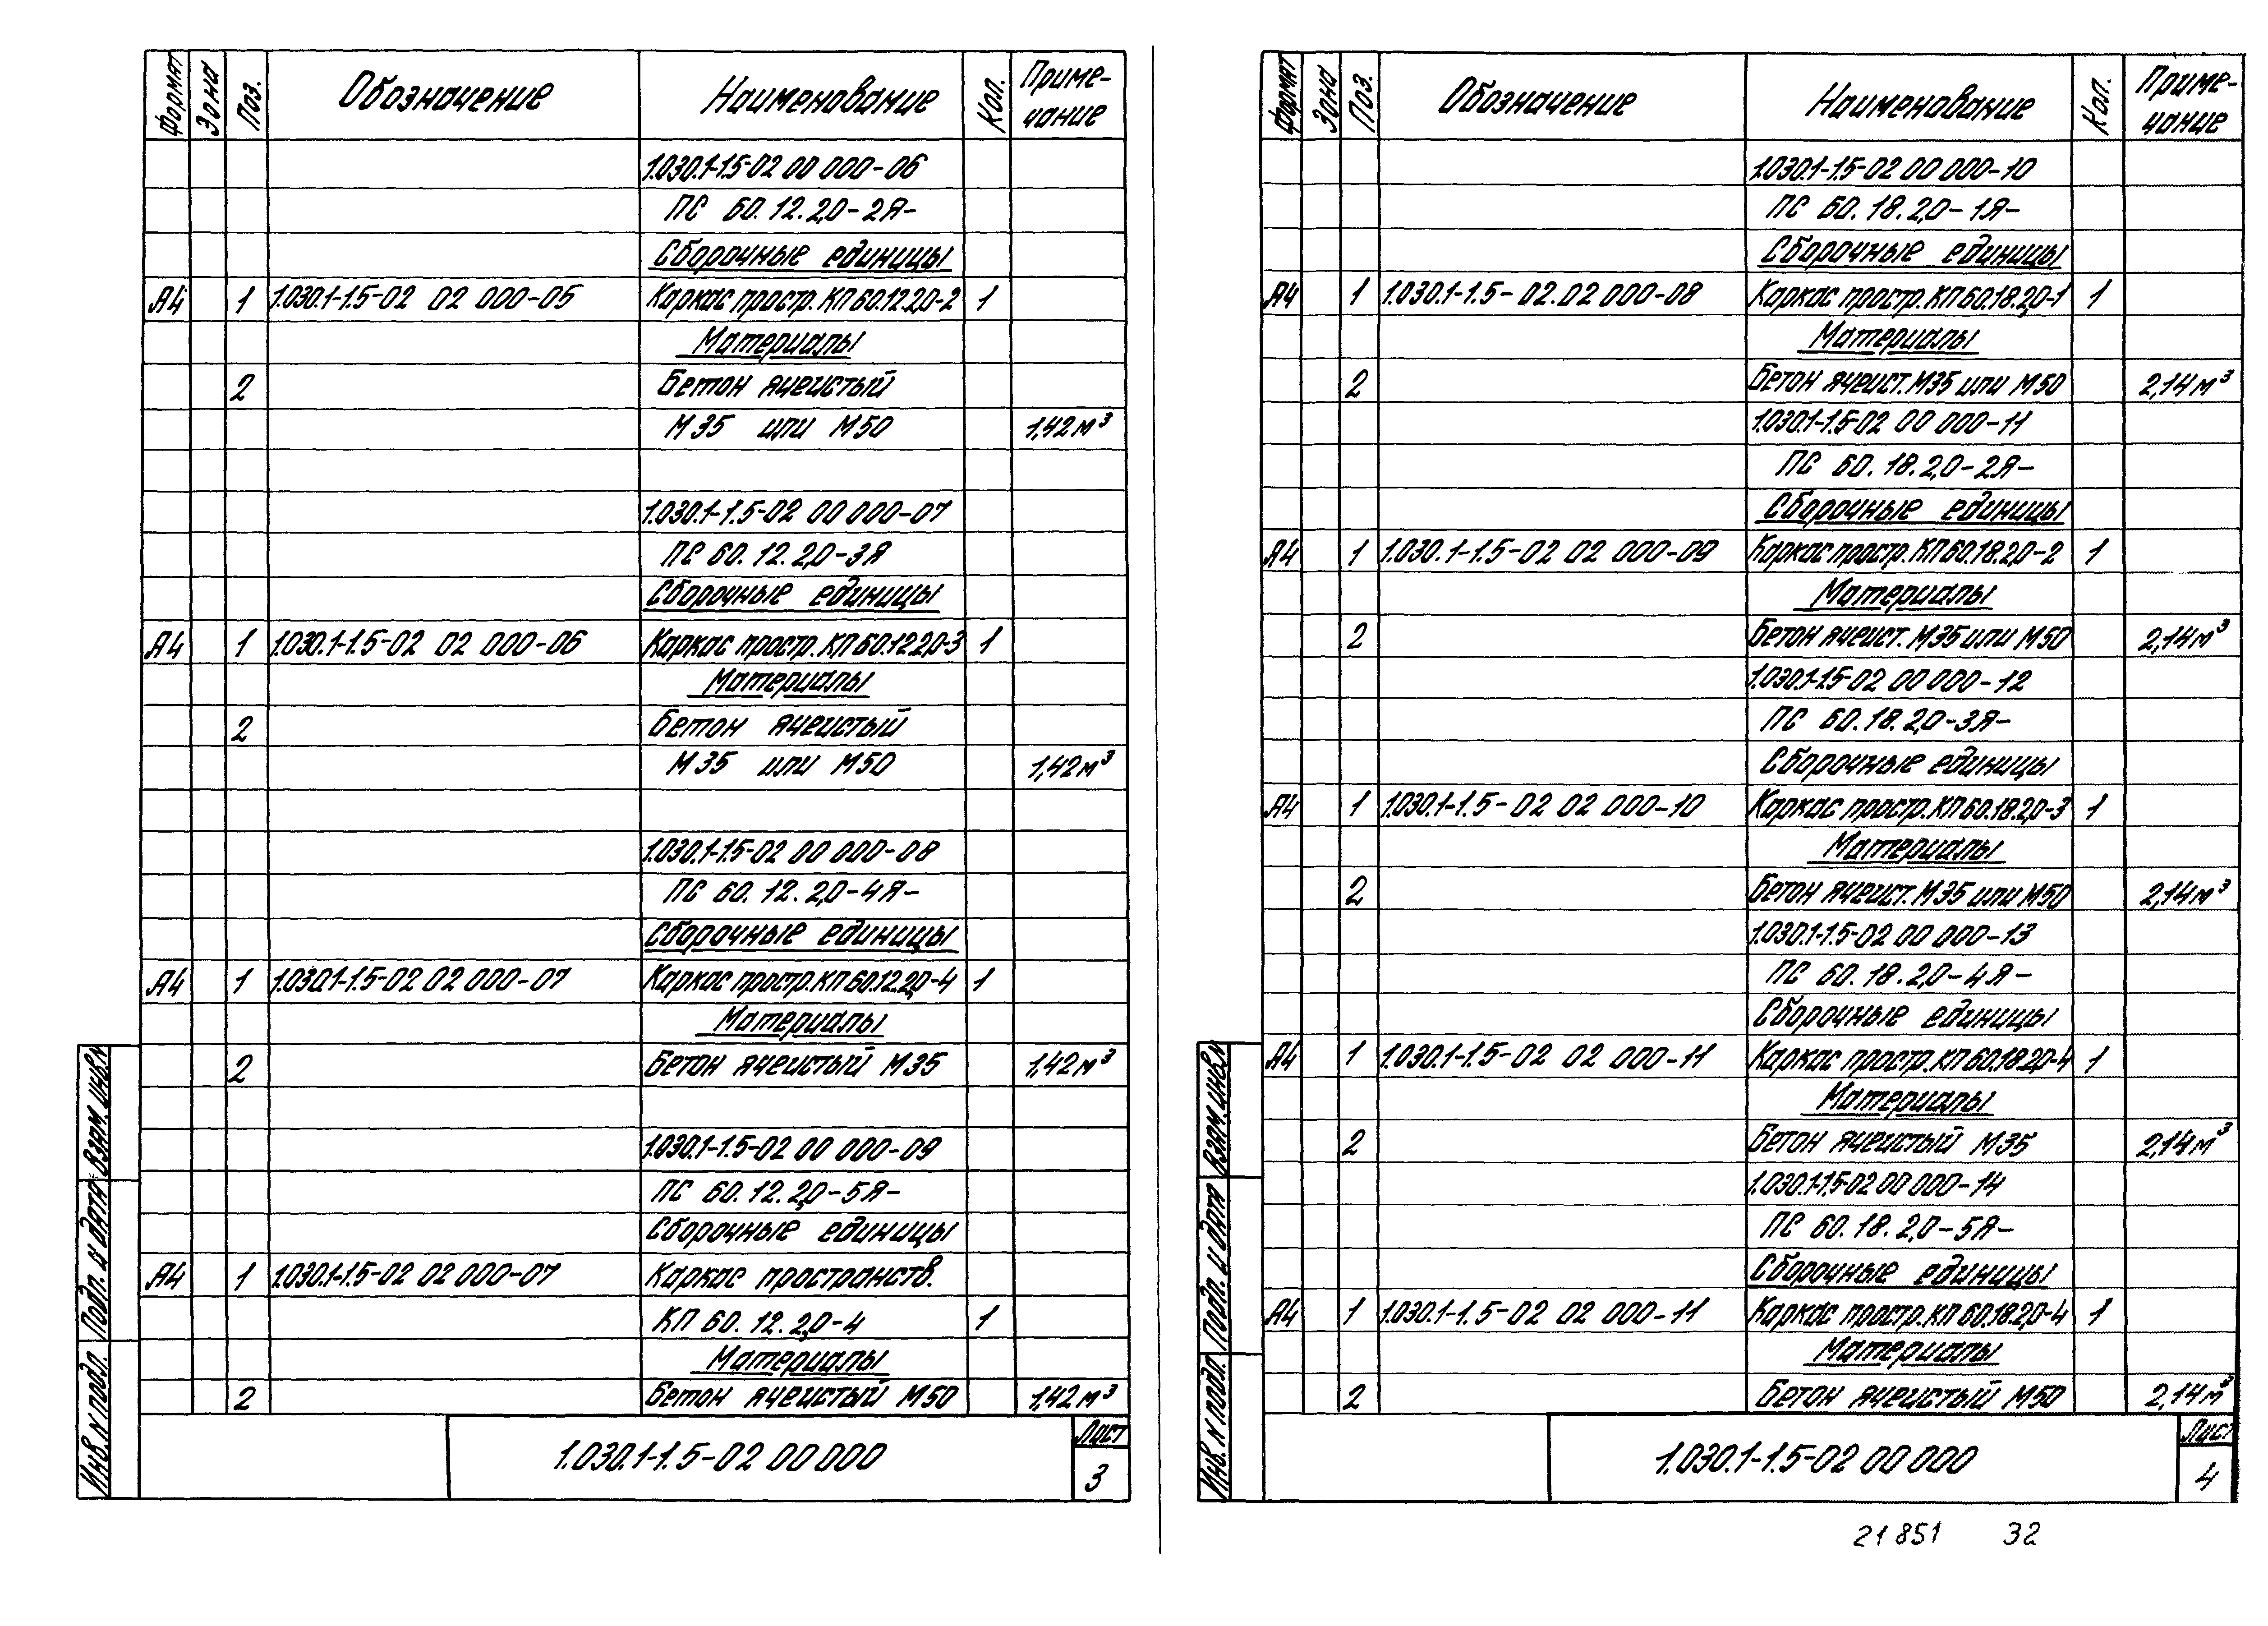 Формат Зона Поз. Обозначение Наименование Кол. Приме-
чание
1.030.1-1.5-02 00 000-06
ПС 60.12.2,0-2Я-
Сборочные единицы
А4 1 1.030.1-1.5-02 02 000-05 Каркас простр. КП 60.12.2,0-2 1
Материалы
2 Бетон ячеистый
М35 или М50 1,42м³
1.030.1-1.5-02 00 000-07
ПС 60.12.2,0-3Я
Сборочные единицы
А4 1 1.030.1-1.5-02 02 000-06 Каркас простр. КП 60.12.2,0-3 1
Материалы
2 Бетон ячеистый
М35 или М50 1,42м³
1.030.1-1.5-02 00 000-08
ПС 60.12.2,0-4Я-
Сборочные единицы
А4 1 1.030.1-1.5-02 02 000-07 Каркас простр. КП 60.12.2,0-4 1
Материалы
2 Бетон ячеистый М35 1,42м³
1.030.1-1.5-02 00 000-09
ПС 60.12.2,0-5Я-
Сборочные единицы
А4 1 1.030.1-1.5-02 02 000-07 Каркас пространств.
КП 60.12.2,0-4 1
Материалы
2 Бетон ячеистый М50 1,42м³
Инв. N подл. Подп. и дата Взам. инв. N
1.030.1-1.5-02 00 000
Лист
3
Формат Зона Поз. Обозначение Наименование Кол. Приме-
чание
1.030.1-1.5-02 00 000-10
ПС 60.18.2,0-1Я-
Сборочные единицы
А4 1 1.030.1-1.5-02.02 000-08 Каркас простр. КП 60.18.2,0-1 1
Материалы
2 Бетон ячеист. М35 или М50 2,14м³
1.030.1-1.5-02 00 000-11
ПС 60.18.2,0-2Я-
Сборочные единицы
А4 1 1.030.1-1.5-02 02 000-09 Каркас простр. КП 60.18.2,0-2 1
Материалы
2 Бетон ячеист. М35 или М50 2,14м³
1.030.1-1.5-02 00 000-12
ПС 60.18.2,0-3Я-
Сборочные единицы
А4 1 1.030.1-1.5-02 02 000-10 Каркас простр. КП 60.18.2,0-3 1
Материалы
2 Бетон ячеист. М35 или М50 2,14м³
1.030.1-1.5-02 00 000-13
ПС 60.18.2,0-4Я-
Сборочные единицы
А4 1 1.030.1-1.5-02 02 000-11 Каркас простр. КП 60.18.2,0-4 1
Материалы
2 Бетон ячеистый М35 2,14м³
1.030.1-1.5-02 00 000-14
ПС 60.18.2,0-5Я-
Сборочные единицы
А4 1 1.030.1-1.5-02 02 000-11 Каркас простр. КП 60.18.2,0-4 1
Материалы
2 Бетон ячеистый М50 2,14м³
Инв. N подл. Подп. и дата Взам. инв. N
1.030.1-1.5-02 00 000
Лист
4
21851 32